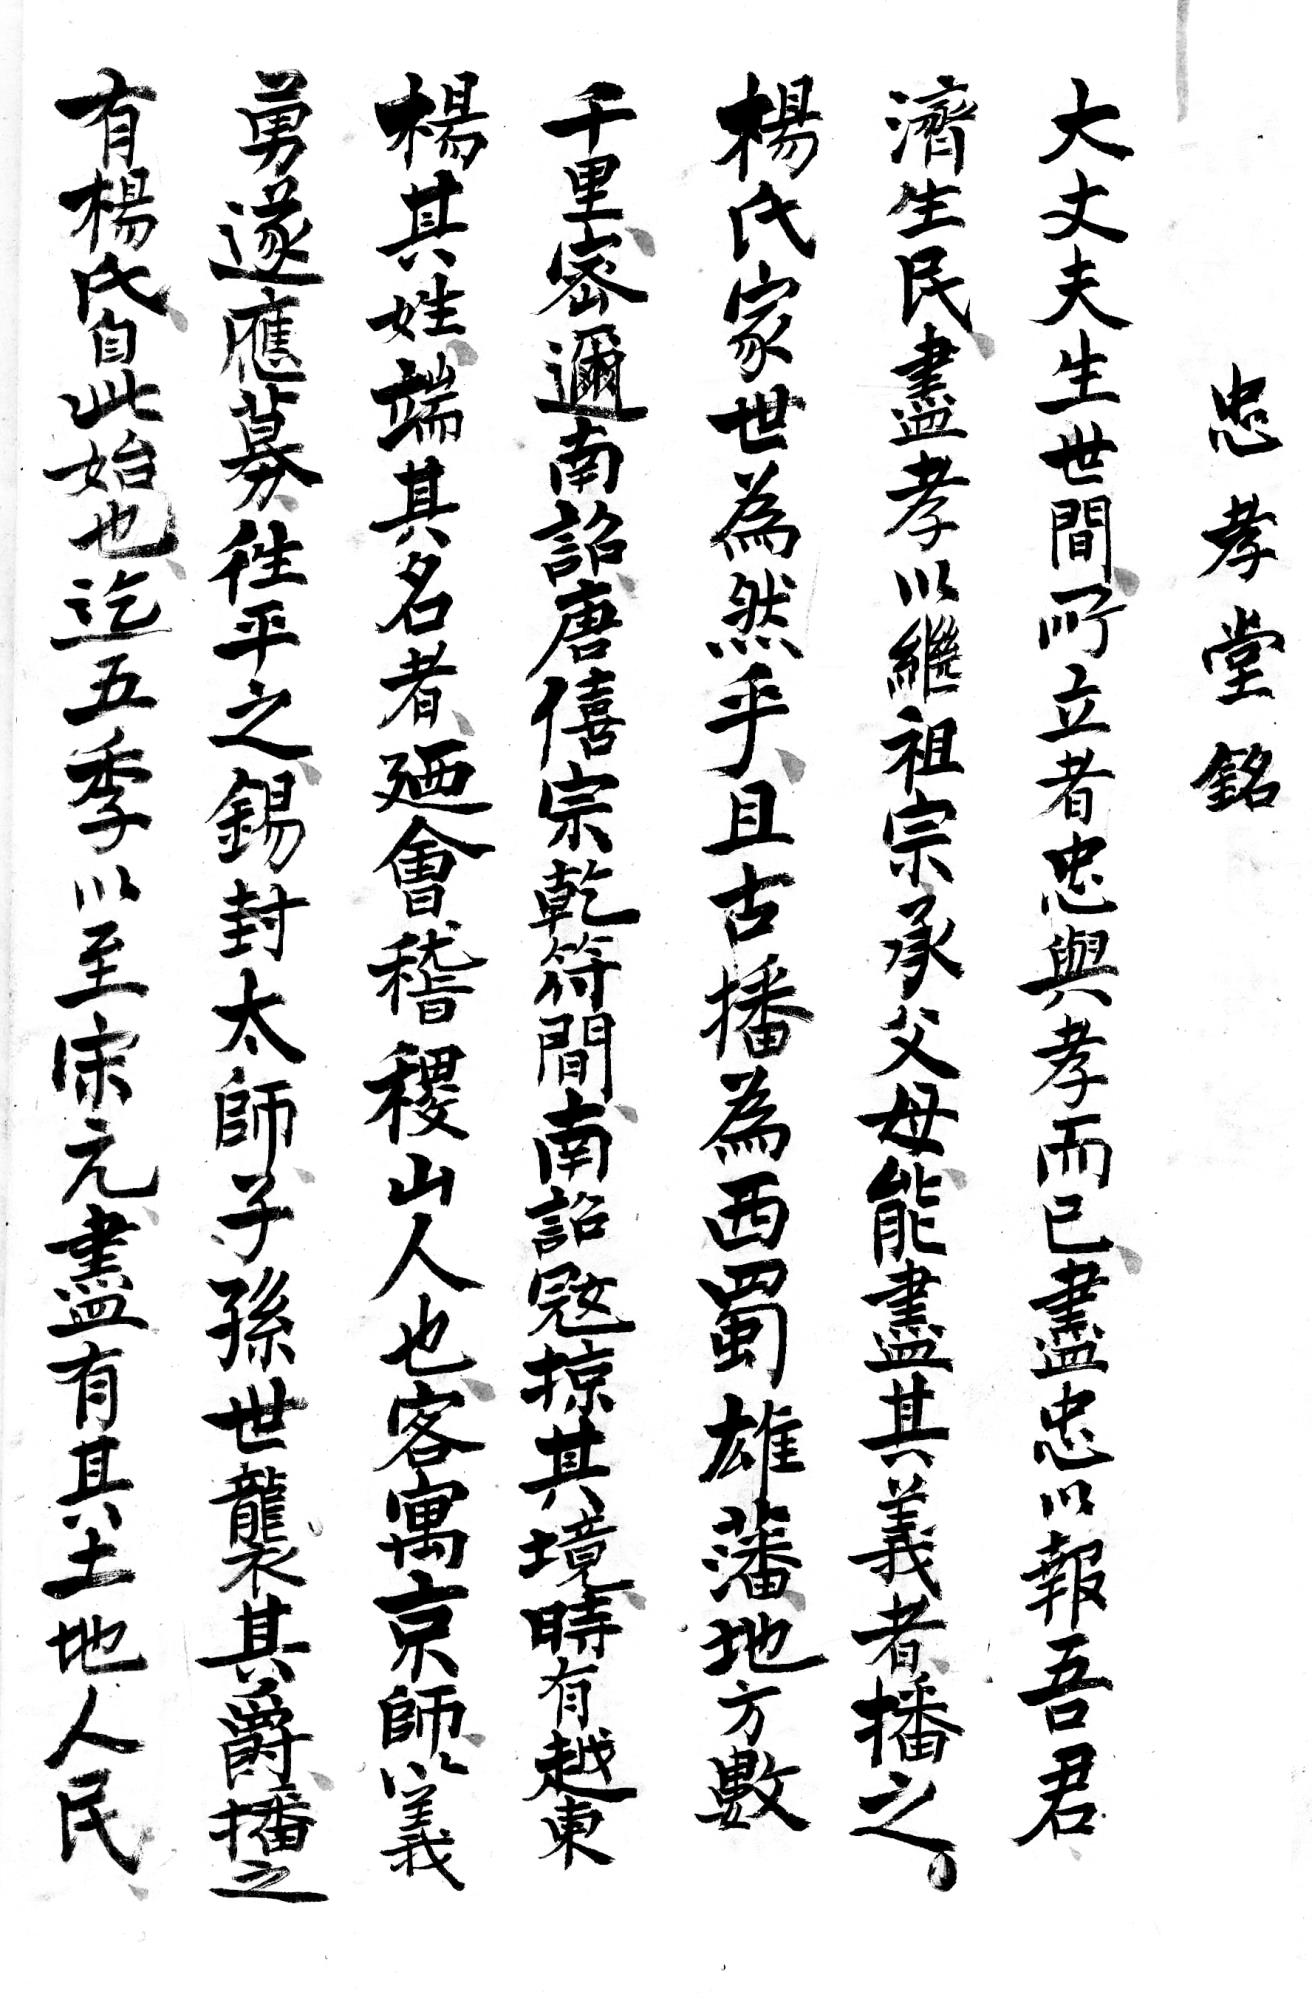 忠孝堂銘
大丈夫生世間所立者忠與孝而已盡忠以報吾君
濟生民盡孝以繼祖宗承父母能盡其義者播之
楊氏家世為然乎且古播為西蜀雄藩地方數
千里密邇南詔唐僖宗乾符間南詔寇掠其境時有越東
楊其姓端其名者廼會稽稷山人也客寓京師以義
勇遂應募徃平之錫封太師子孫世襲其爵播之
有楊氏自此始也迄五季以至宋元盡有其土地人民